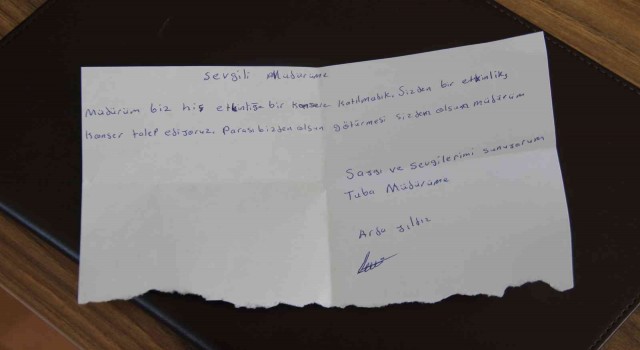 Sevgili Müdürüme
Müdürüm biz hiç etkinliğe bir konsere katılmadık. Sizden bir etkinlik,
konser talep ediyoruz. Parası bizden olsun götürmesi sizden olsun müdürüm
Saygı ve sevgilerimi sunuyorum
Tuba Müdürüme
Arzu yıldız